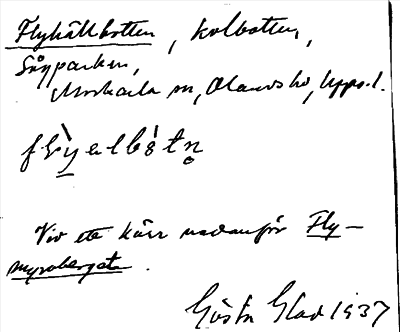 Flykällbotten, kolbotten,
Sågparken,
Morkarla sn, Olands hd, Upps.l.
Vid ett kärr nedanför Fly-
myrobergets.
Gösta Glad 1937